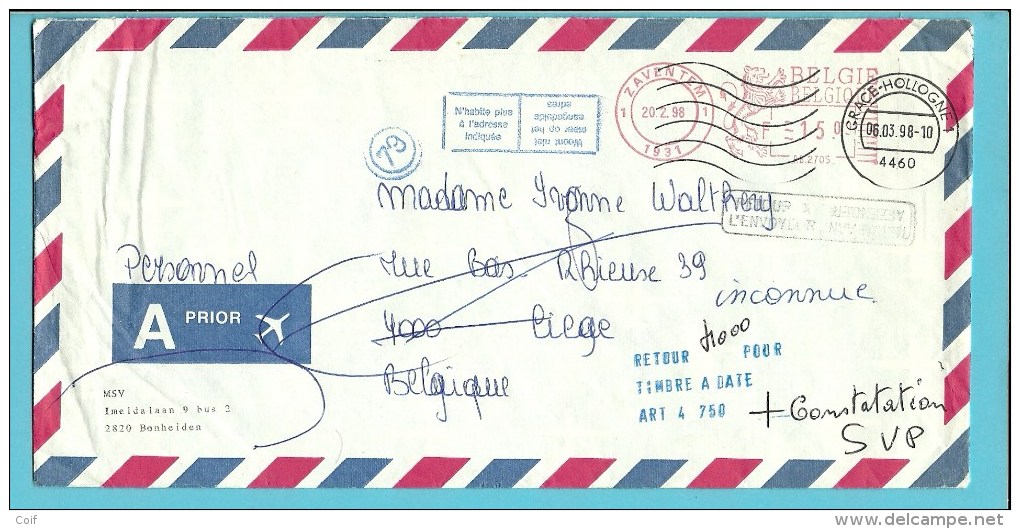 N'habite plus
à l'adresse
indiquée
Woont niet
meer op het
aangeduide
adres
ZAVENTEM
1 20.2.98 1
1931
BELGIE
BELGIQUE
GRACE-HOLLOGNE 1
06.03.98-10
4460
73
Madame Yvonne Walthery
L'ENVOYEUR
Personnel
rue Bas Rhieuse 39
inconnue
A PRIOR
4000 Liege
4000
RETOUR POUR
Belgique
TIMBRE A DATE
ART 4 750
+ Constatation
SVP
MSV
Imeldalaan 9 bus 2
2820 Bonheiden
Coif
delcampe.net